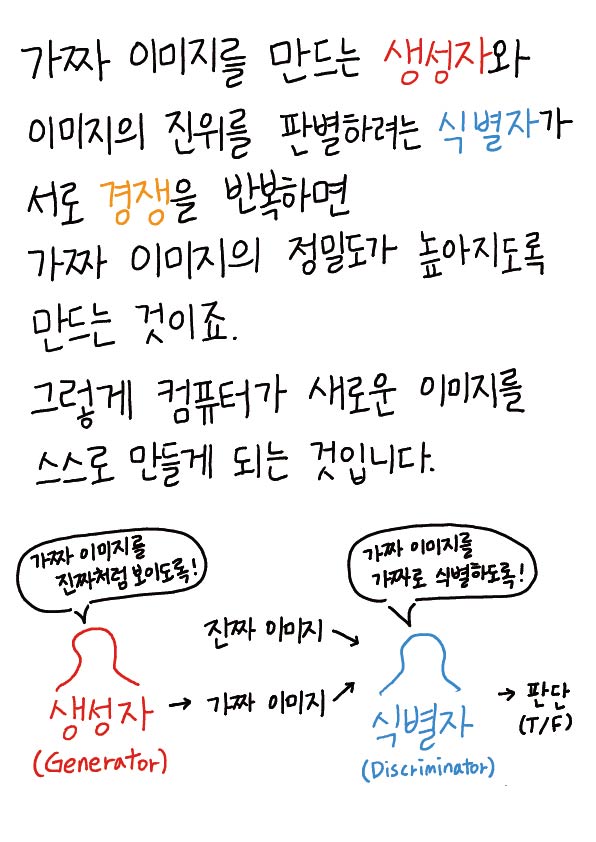 가짜 이미지를 만드는 생성자와
이미지의 진위를 판별하려는 식별자가
서로 경쟁을 반복하면
가짜 이미지의 정밀도가 높아지도록
만드는 것이죠.
그렇게 컴퓨터가 새로운 이미지를
스스로 만들게 되는 것입니다.
가짜 이미지를
진짜처럼 보이도록!
가짜 이미지를
가짜로 식별하도록!
진짜 이미지
생성자 → 가짜 이미지
식별자
→ 판단
(T/F)
(Generator)
(Discriminator)